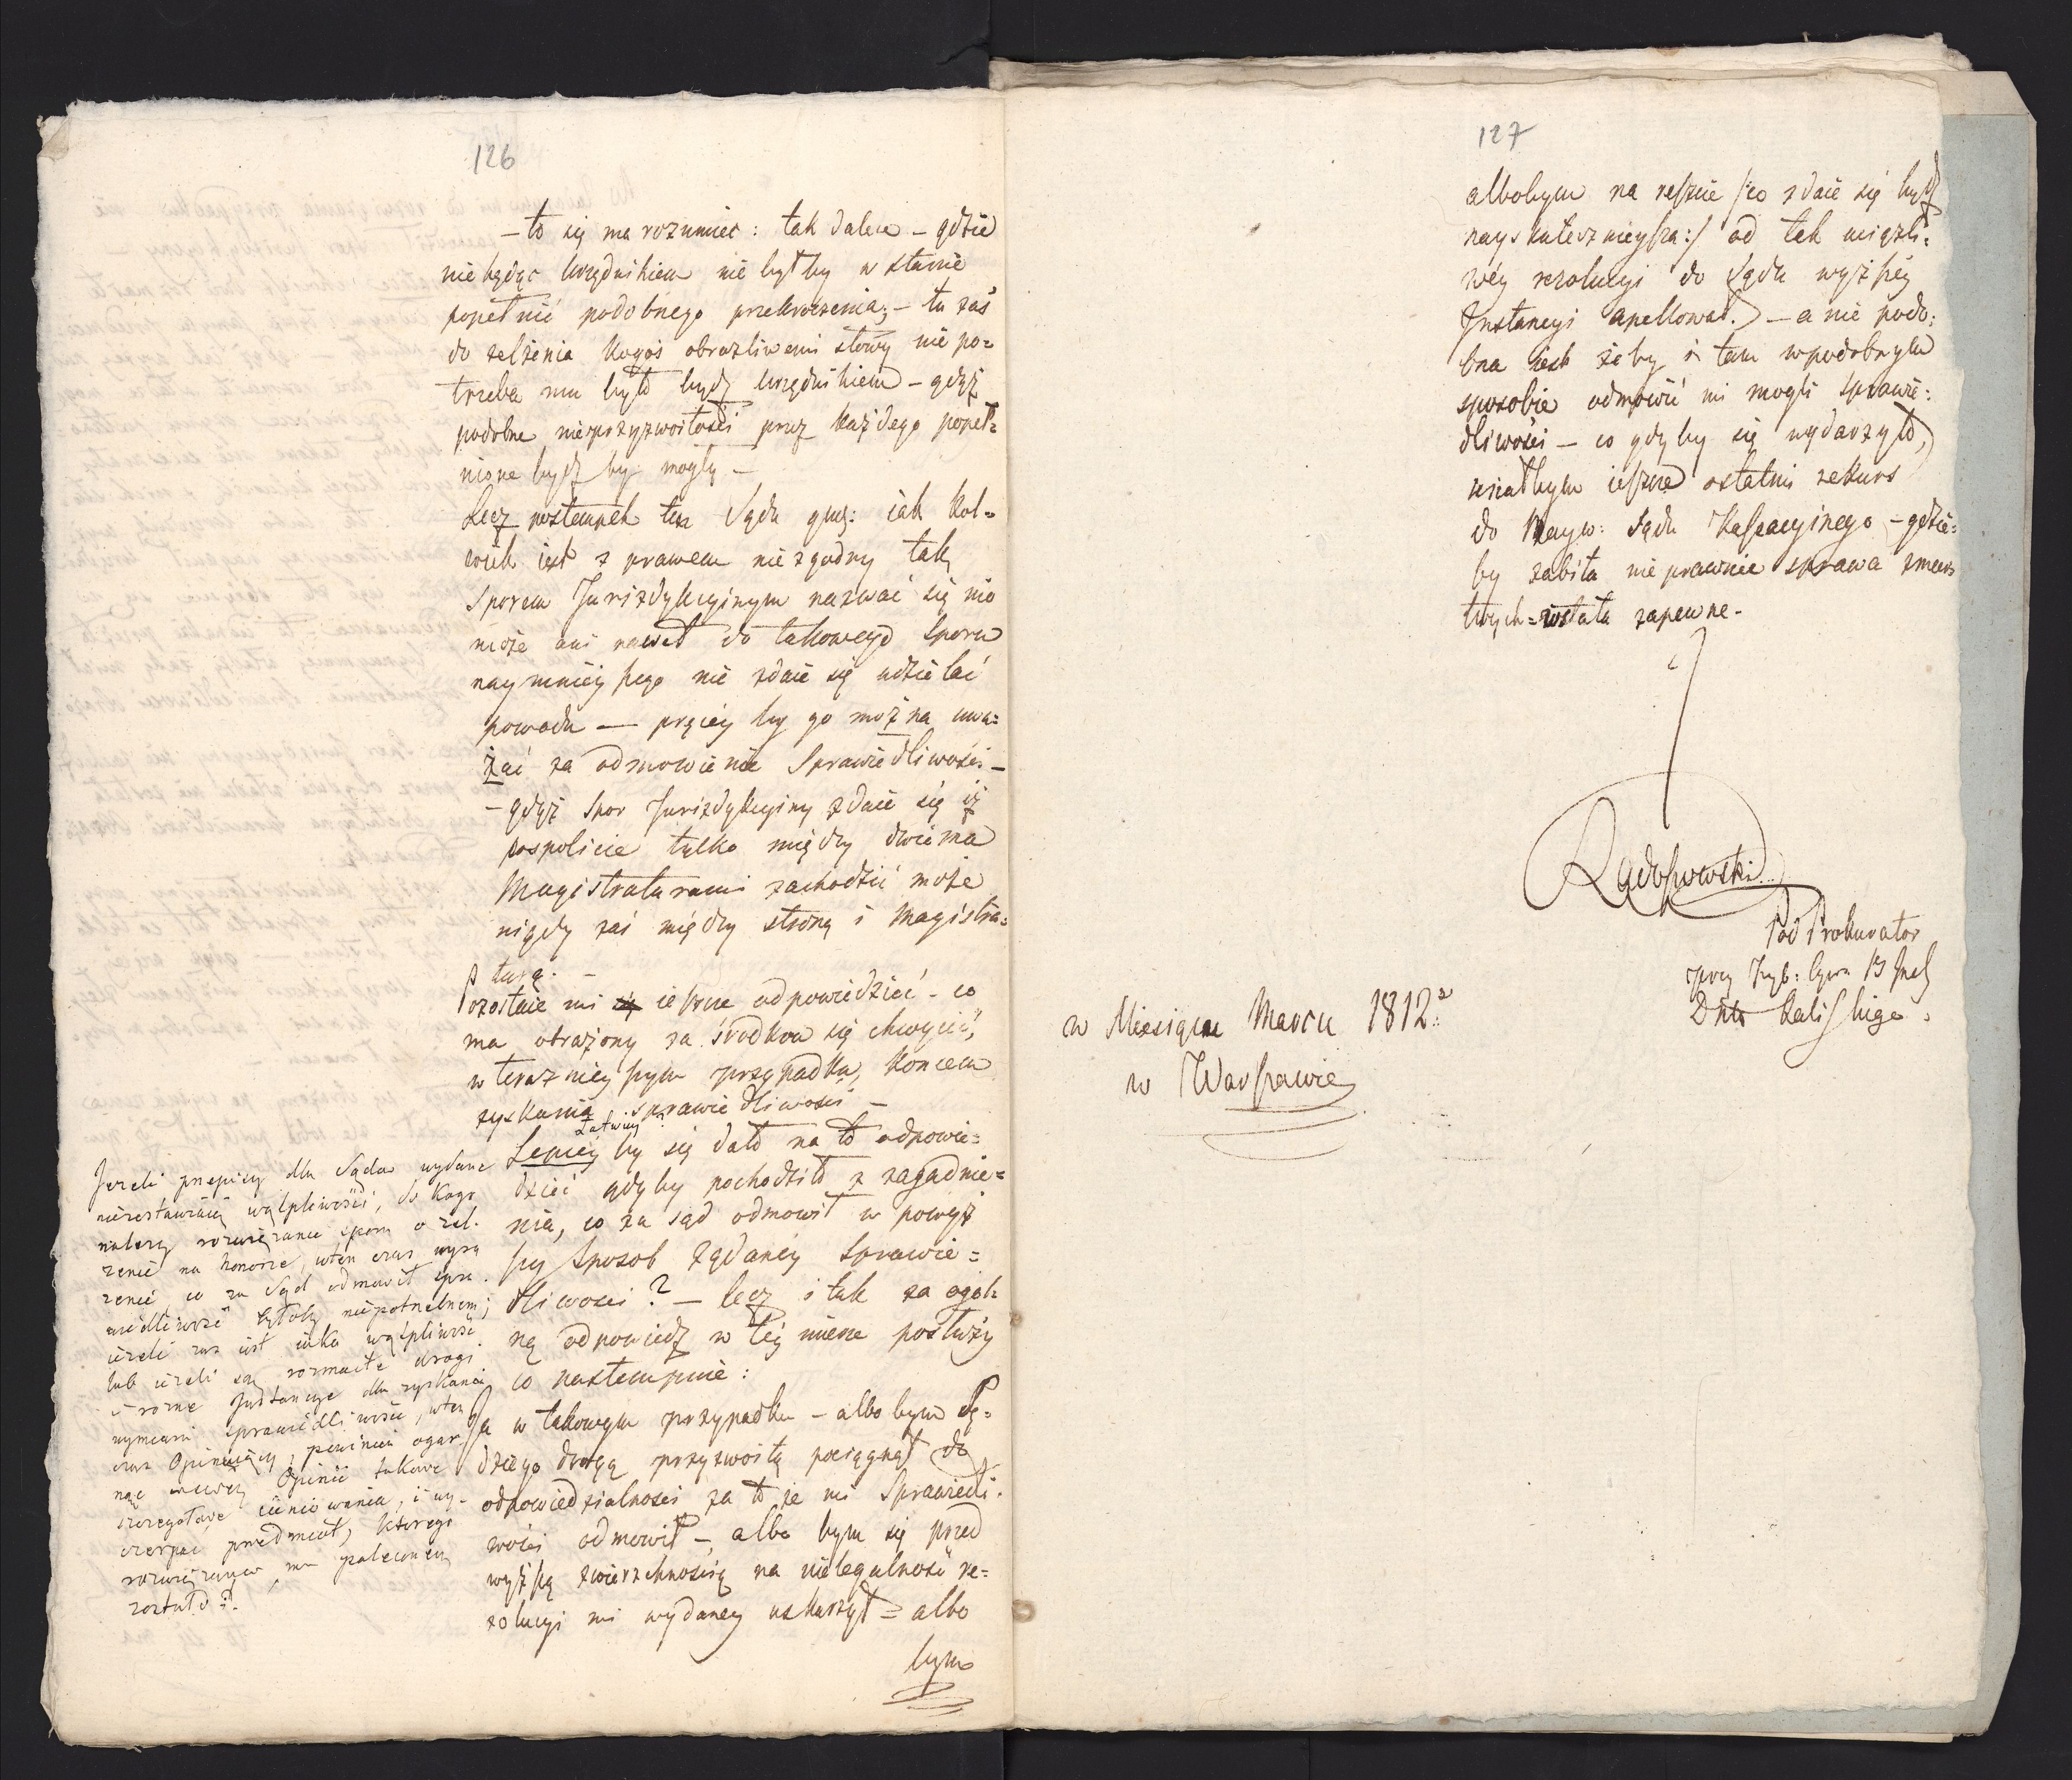 126
– to się ma rozumiec: tak dalece – gdzie
nie będąc Urzędnikiem nie byłby w stanie
popełnić podobnego przekroczenia; – tu zaś
do zelżenia kogoś obrazliwemi słowy nie po=
trzeba mu było bydź Urzędnikiem – gdyż
podobne nieprzyzwoitości przez każdego popeł=
nione bydź by mogły –
Lecz postempek ten Sądu gmi: iak kol=
wiek iest z prawem niezgodny tak
Sporem Jurizdykcyinym nazwać się nie
może ani nawet do takowego Sporu
naymnieyszego nie zdaie się udzielać
powodu — pręciey by go można uwa=
żać za odmowienie Sprawiedliwości –
– gdyż Spor Jurizdykcyiny zdaie się iż
pospolicie tylko między dwiema
Magistraturami zachodzić może
nigdy zaś między stroną i Magistra=
turą. –
Pozostaie mi ieszcze odpowiedzieć – co
ma obrażony za środkow się chwycić,
w teraznieyszym przypadku, koncem
zyskania sprawiedliwości –
Łatwiey
Lepiey by się dało na to odpowie=
dzieć gdyby pochodziło z zagadnie=
nia, co za sąd odmowił w powyż
szy Sposob żądaney Sprawie=
dliwości? – lecz i tak za ogol=
ną odpowiedz w tey mierze posłuży
co nastempuie:
Ja w takowym przypadku – albo bym Sę=
dziego drogą przyzwoitą pociągnął do
odpowiedzialności za to że mi Sprawiedli=
wości odmowił –, albo bym się przed
wyższą zwierzchnością na nielegalność re=
zolucyi mi wydaney uskarżył = albo
bym
Jezeli przepisy dla Sądow wydane
niezostawiaią wątpliwości, do kogo
należy rozwiązanie sporu o zel-
żenie na honorze, wten czas wyra
żenie co za Sąd odmowił spra
wiedliwość byłoby niepotrzebnem;
iezeli zas iest iaka wątpliwość
lub iezeli są rozmaite drogi
i rozne Instancye dla zyskania
wymiaru sprawiedliwości, wten
czas Opiniuiący, powinien ogar=
nąc w swey Opinii takowe
szczegołowe cieniowania, i wy-
czerpać przedmiot, ktorego
rozwiązanie mu polecone
zostało.
127
albobym na reszcie /:co zdaie się bydź
nayskutecznieysza:/ od tak uciążli=
wéy rezolucyi do Sądu wyższey
Instancyi apellował. – a nie podo=
bna iest żeby i tam w podobnym
sposobie odmowić mi mogli sprawie=
dliwości – co gdyby się wydarzyło,
miałbym ieszcze ostatni rekurs
do Nayw: Sądu Kassacyinego – gdzie=
by zabita nie prawnie sprawa zmar
twych=wstała zapewne.
Radoszewski
Pod Prokurator
przy Tryb: Cywi 1szy Inst
Dptu Kaliskiego.
w Miesiącu Marcu 1812
w Warszawie